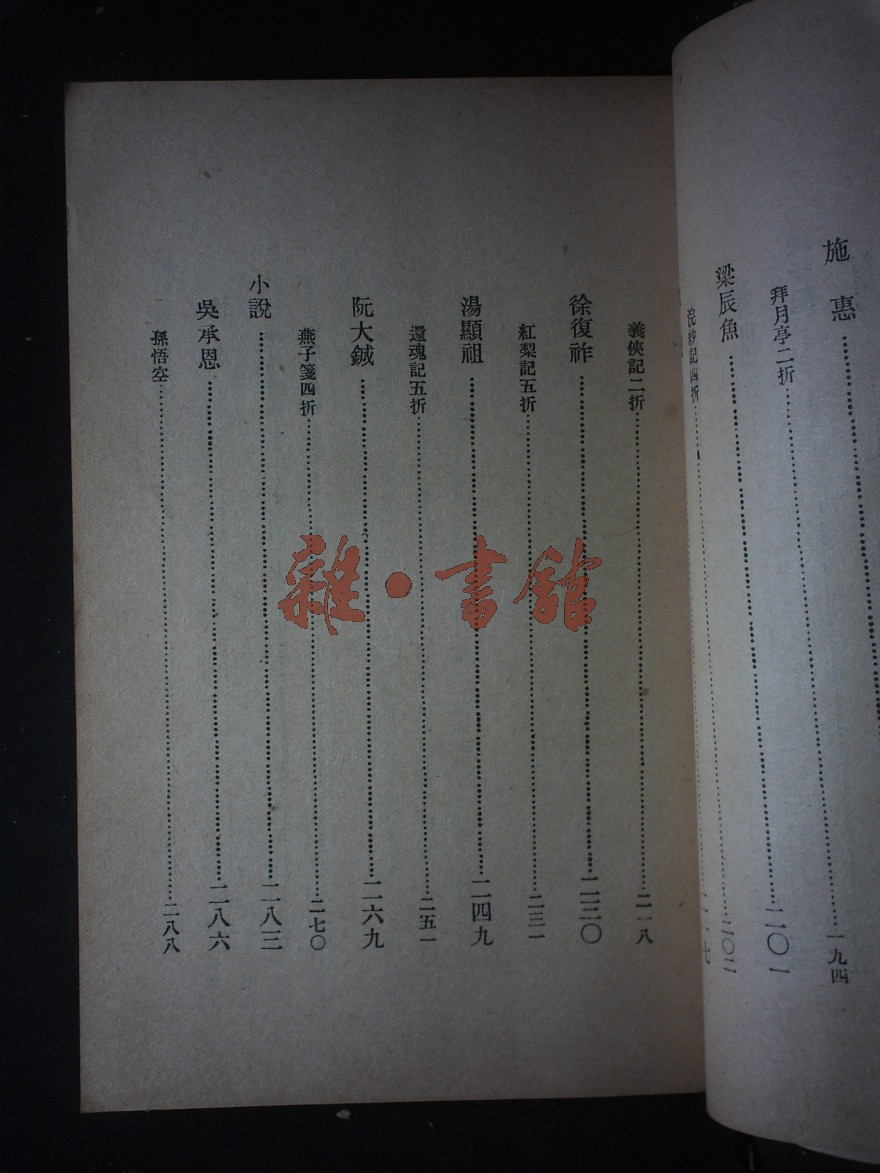 施惠……一九四
拜月亭二折……二〇一
梁辰魚……二〇二
浣紗記四折
七
義俠記二折……二一八
徐復祚……二三〇
紅梨記五折……二三一
湯顯祖……二四九
還魂記五折……二五一
阮大鋮……二六九
燕子箋四折……二七〇
小說……二八三
吳承恩……二八六
孫悟空……二八八
雜·書館